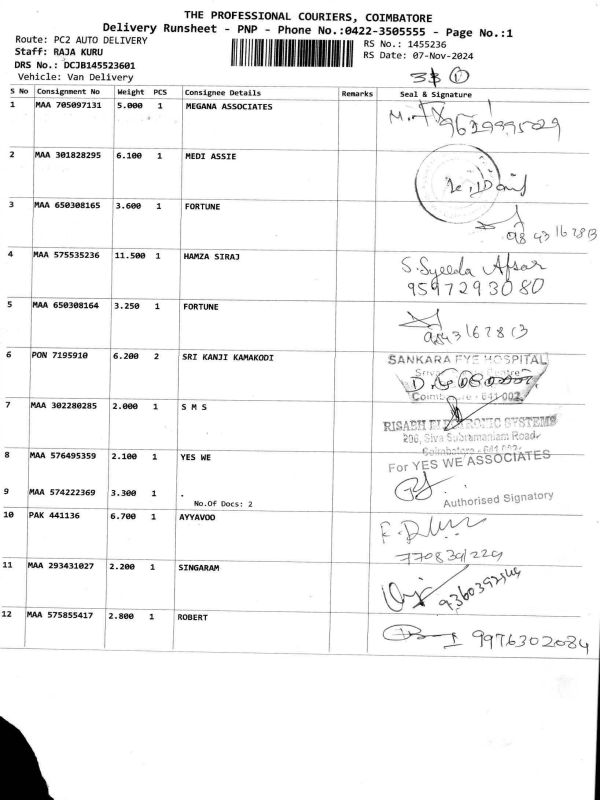 THE PROFESSIONAL COURIERS, COIMBATORE
Delivery Runsheet - PNP - Phone No.:0422-3505555 - Page No.:1
Route: PC2 AUTO DELIVERY
RS No.: 1455236
Staff: RAJA KURU
RS Date: 07-Nov-2024
DRS No.: DCJB145523601
Vehicle: Van Delivery
S No Consignment No Weight PCS Consignee Details Remarks Seal & Signature
1 MAA 705097131 5.000 1 MEGANA ASSOCIATES
2 MAA 301828295 6.100 1 MEDI ASSIE
3 MAA 650308165 3.600 1 FORTUNE
4 MAA 575535236 11.500 1 HAMZA SIRAJ
S. Syeeda Afsar
9597293080
5 MAA 650308164 3.250 1 FORTUNE
6 PON 7195910 6.200 2 SRI KANJI KAMAKODI
SANKARA EYE HOSPITAL
Coimbatore - 641 002.
7 MAA 302280285 2.000 1 S M S
RISABH ELECTRONIC SYSTEMS
206, Siva Subramaniam Road,
8 MAA 576495359 2.100 1 YES WE
For YES WE ASSOCIATES
9 MAA 574222369 3.300 1 .
No.Of Docs: 2
Authorised Signatory
10 PAK 441136 6.700 1 AYYAVOO
11 MAA 293431027 2.200 1 SINGARAM
12 MAA 575855417 2.800 1 ROBERT
9976302084